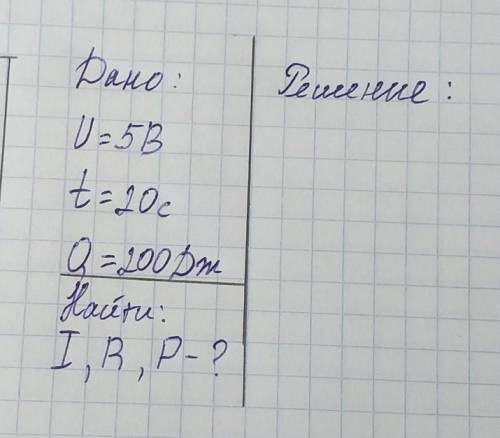 Дано:
Решение:
U=5В
t=20с
Q=200Дж
Найти:
I, R, P-?